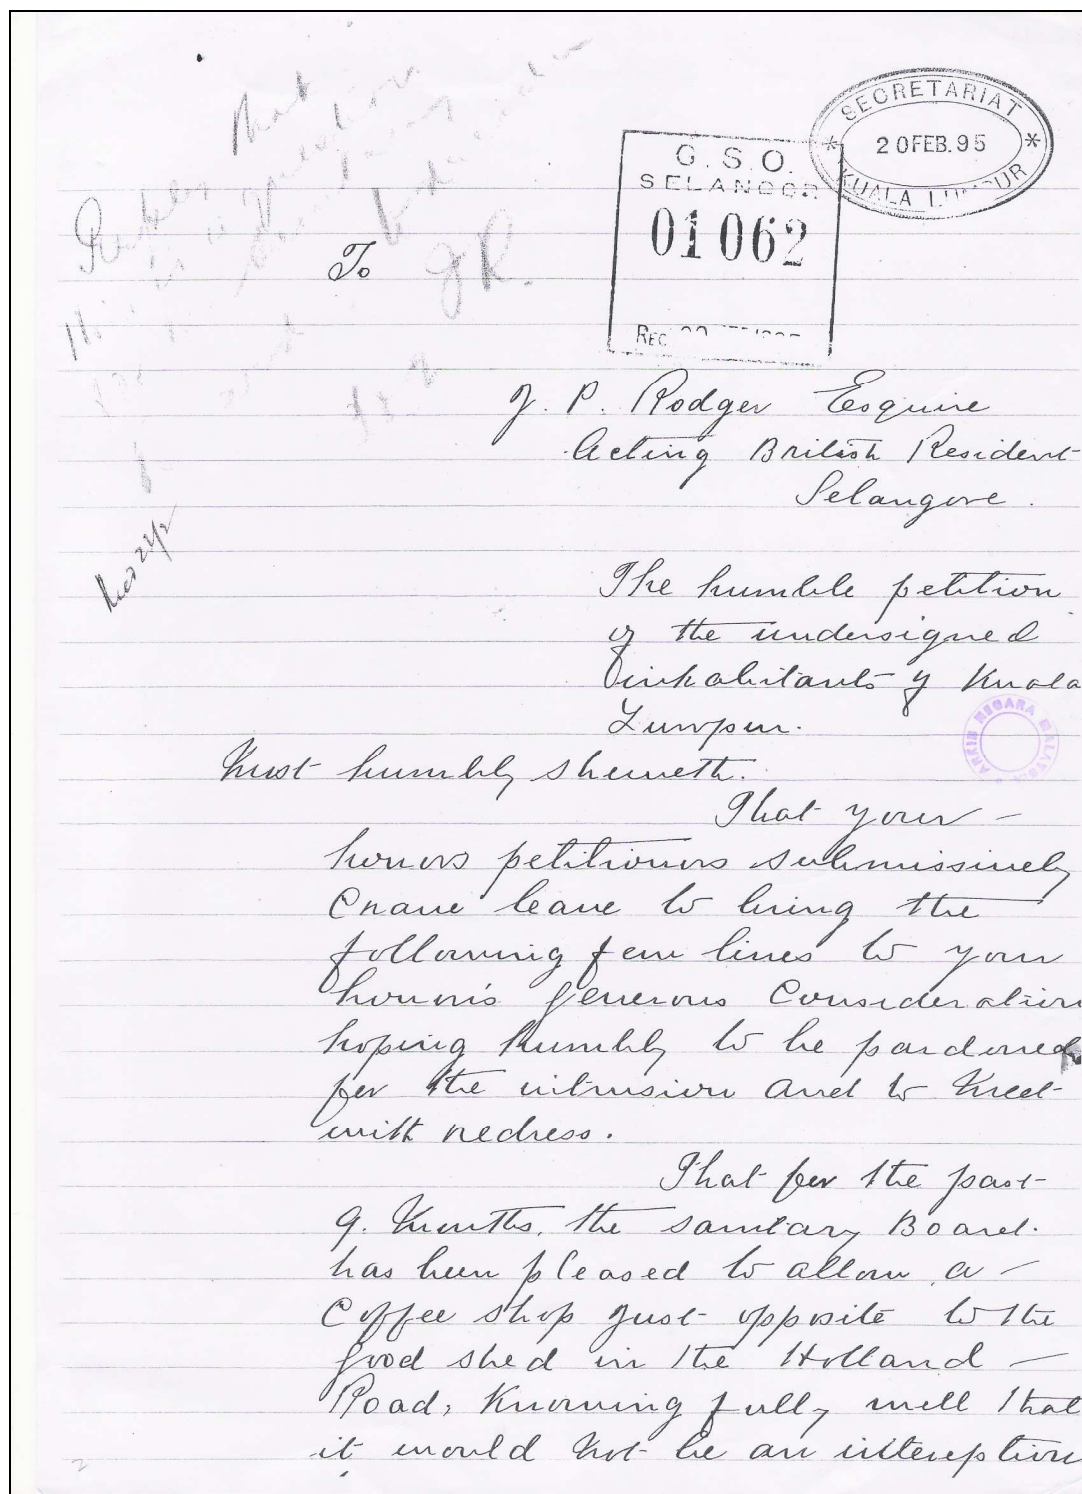 SECRETARIAT
20 FEB. 95
KUALA LUMPUR
G. S. O.
SELANGOR
01062
REC
To
J. P. Rodger Esquire
Acting British Resident
Selangore.
The humble petition
of the undersigned
inhabitants of Kuala
Lumpur.
ARKIB NEGARA MALAYSIA
Most humbly sheweth.
That your -
honors petitioners submissively
Crave leave to bring the
following few lines to your
honor's generous Consideration
hoping humbly to be pardoned
for the intrusion and to meet
with redress.
That for the past
9. Months, the sanitary Board.
has been pleased to allow a -
Coffee shop just opposite to the
good shed in the Holland -
Road, Knowing fully well that
it would not be an intereption